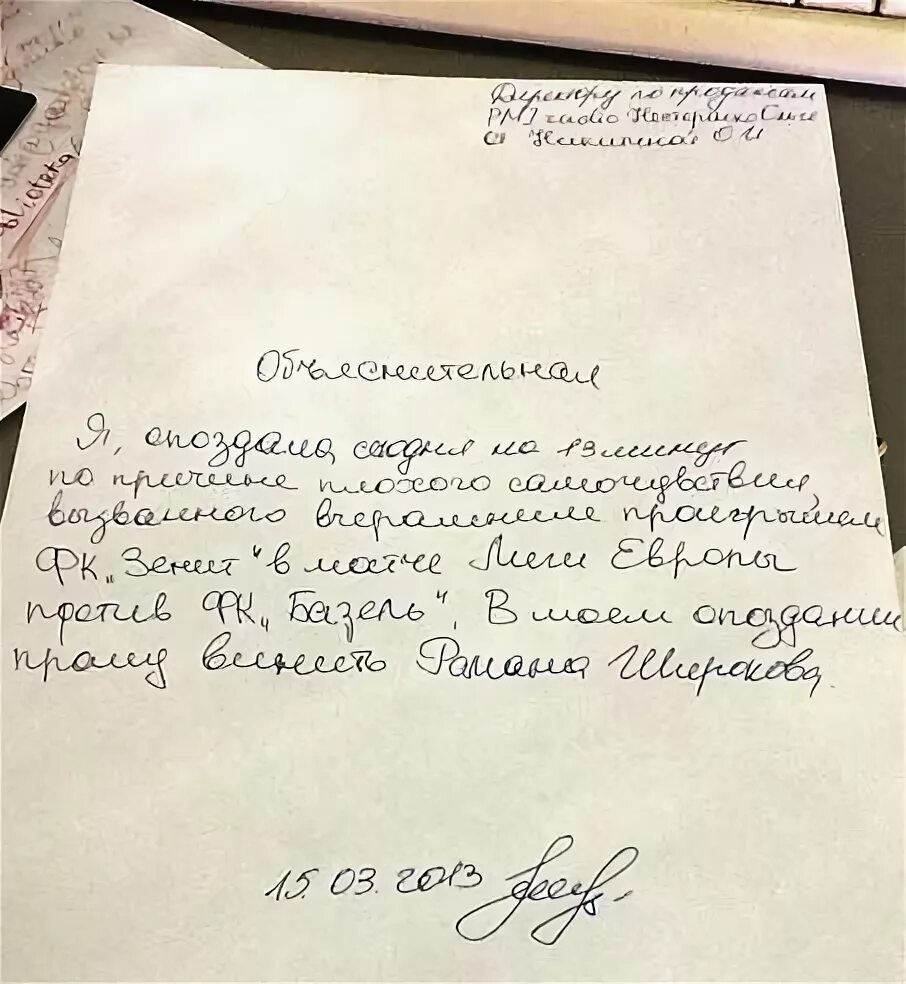 Директору по продажам
PMI radio Нестаренко Ольге
от Никитиной О И
Объяснительная
Я, опоздала сегодня на 13 минут
по причине плохого самочувствия,
вызванного вчерашним проигрышем
ФК „Зенит“ в матче Лиги Европы
против ФК „Базель“. В моем опоздании
прошу винить Романа Широкова.
15.03.2013
blioteka